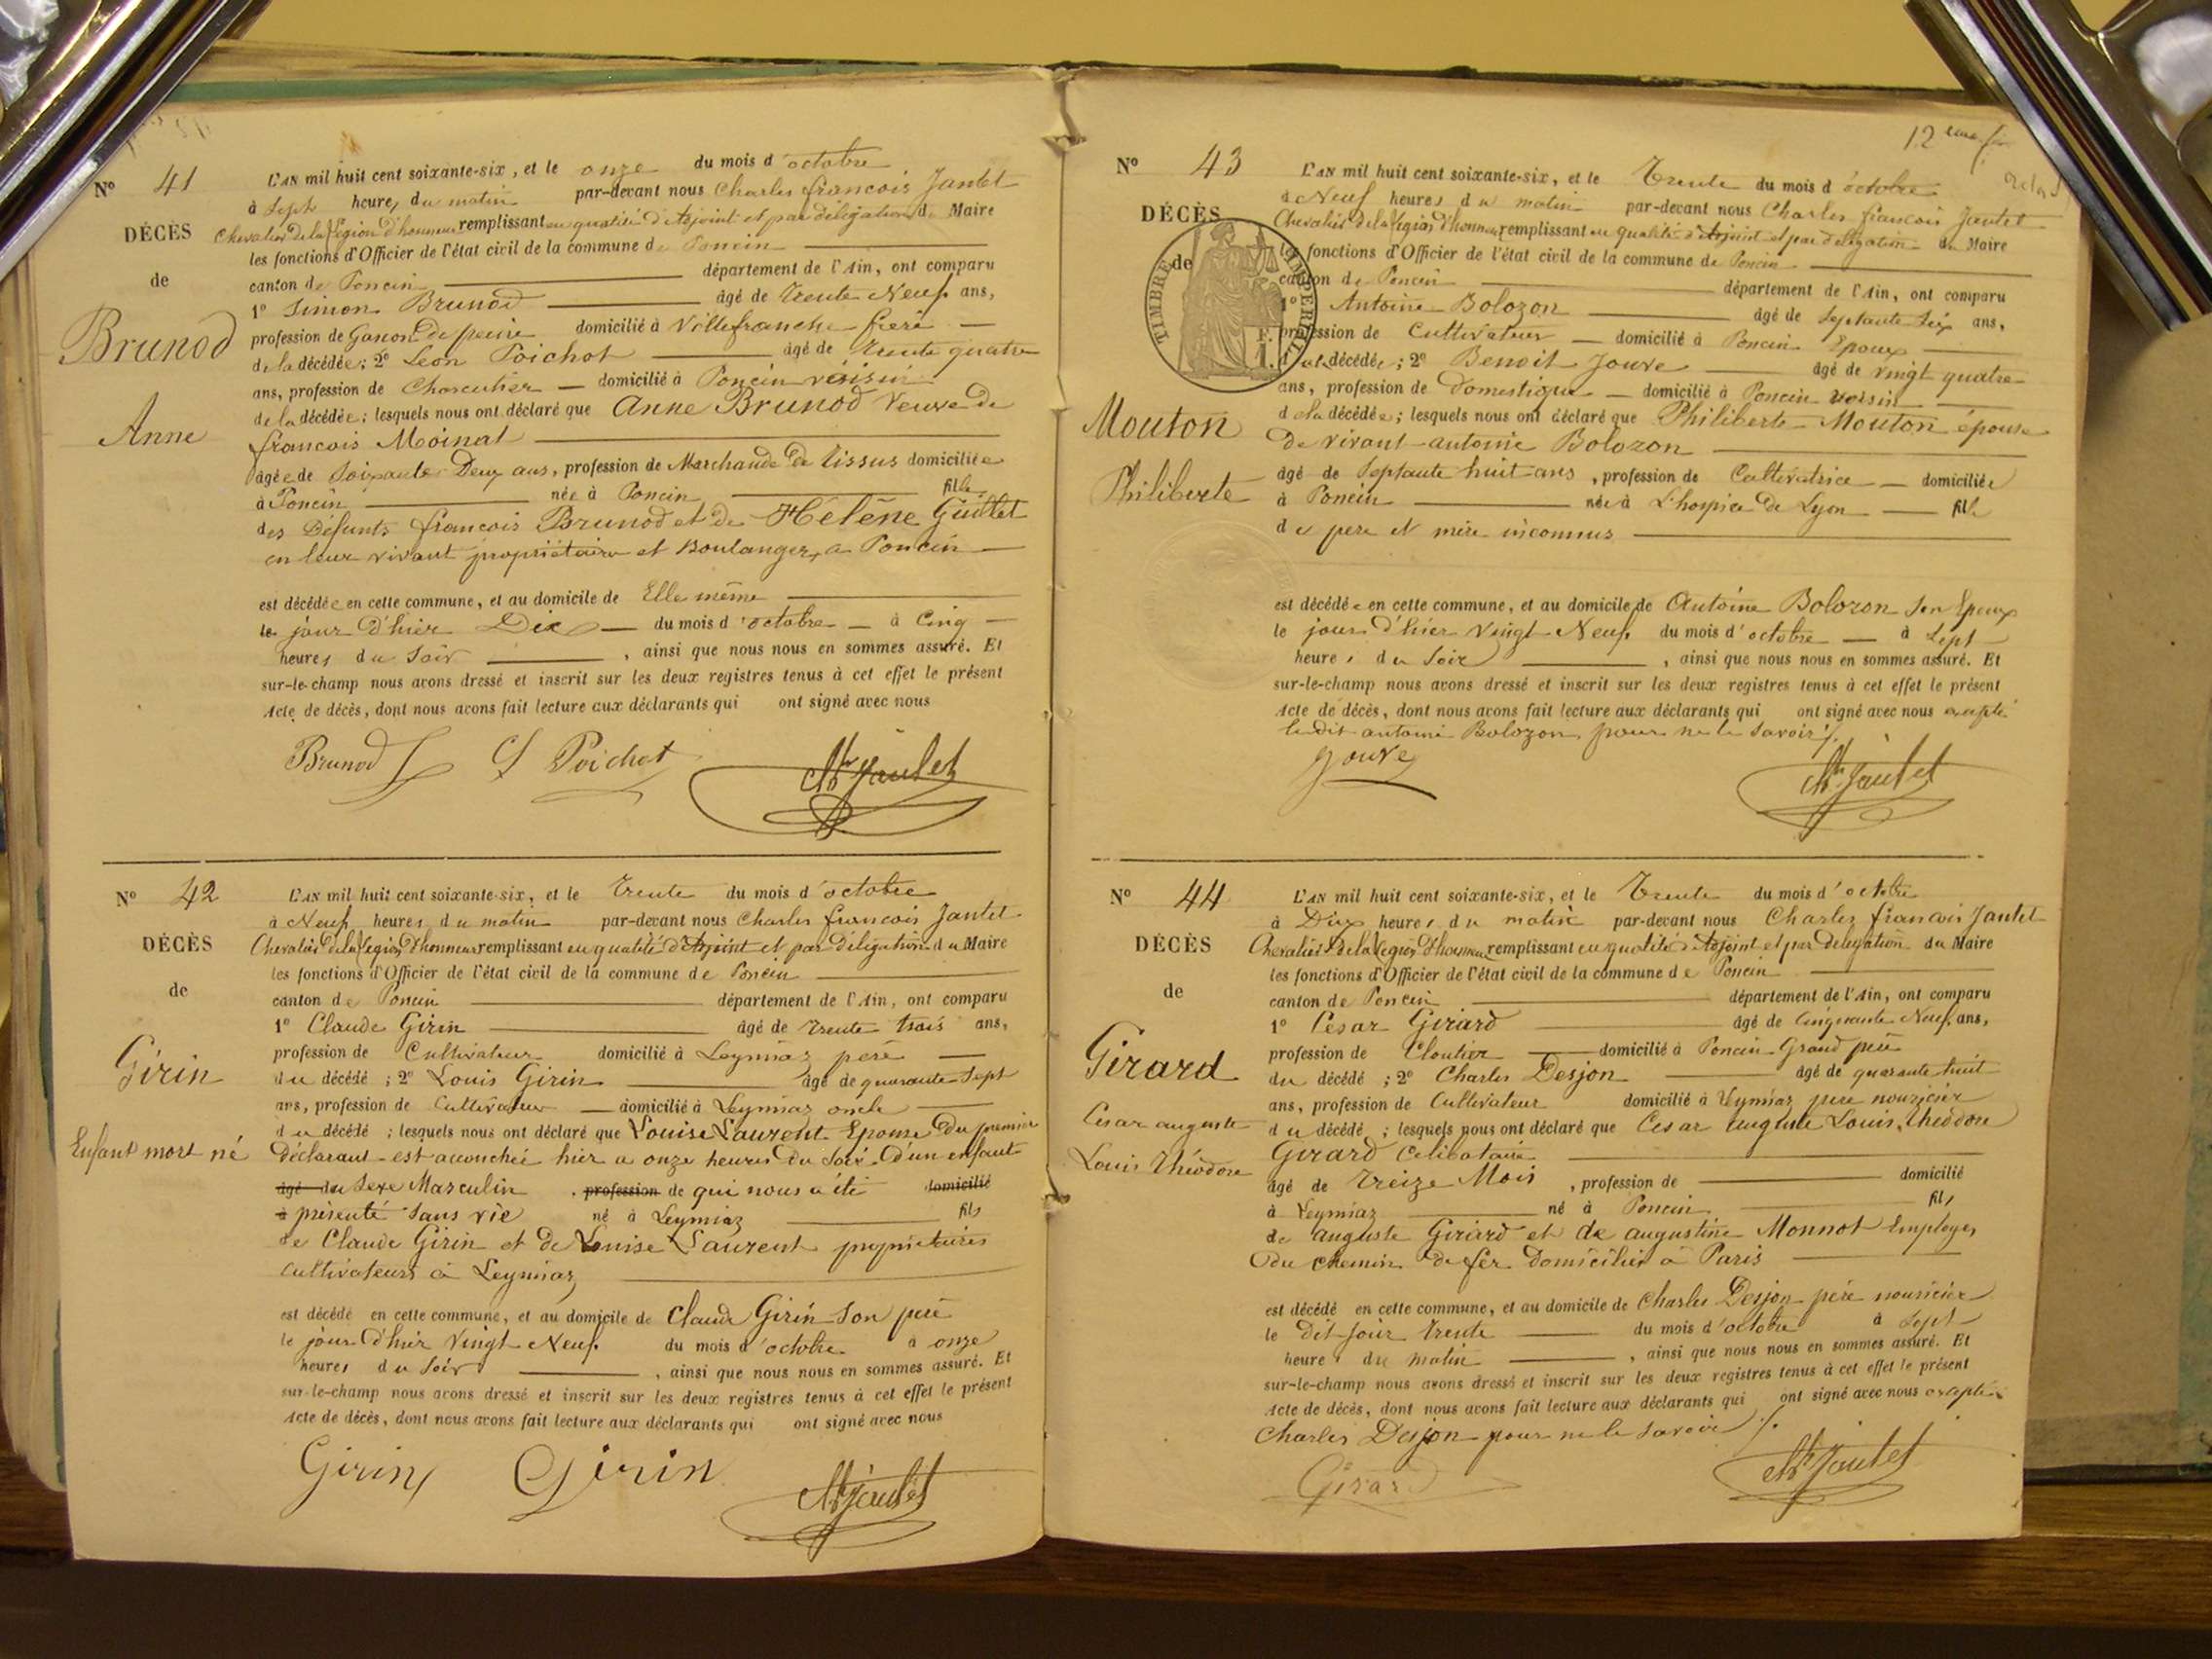 N° 41
DÉCÈS
de
Brunod
Anne
L'AN mil huit cent soixante-six, et le onze du mois d'octobre
à Sept heures du matin par-devant nous Charles francois Jantet
Chevalier de la Légion d'honneur remplissant en qualité d'Adjoint et par délégation du Maire
les fonctions d'Officier de l'état civil de la commune de Poncin
canton de Poncin département de l'Ain, ont comparu
1° Simon Brunod âgé de trente Neuf ans,
profession de Garçon de peine domicilié à Villefranche frere
de la décédée; 2° Leon Poichot âgé de trente quatre
ans, profession de Charcutier domicilié à Poncin voisin
de la décédée; lesquels nous ont déclaré que Anne Brunod Veuve de
francois Moinat
âgée de Soixante Deux ans, profession de Marchande de tissus domiciliée
à Poncin née à Poncin fille
des Défunts francois Brunod et de Hélène Guillet
en leur vivant propriétaires et Boulangers a Poncin
est décédée en cette commune, et au domicile de Elle même
le jour d'hier Dix du mois d'octobre à Cinq
heures du Soir, ainsi que nous nous en sommes assuré. Et
sur-le-champ nous avons dressé et inscrit sur les deux registres tenus à cet effet le présent
Acte de décès, dont nous avons fait lecture aux déclarants qui ont signé avec nous
Brunod Poichot Ch Jantet
N° 42
DÉCÈS
de
Girin
Enfant mort né
L'AN mil huit cent soixante-six, et le trente du mois d'octobre
à Neuf heures du matin par-devant nous Charles francois Jantet
Chevalier de la Légion d'honneur remplissant en qualité d'Adjoint et par délégation du Maire
les fonctions d'Officier de l'état civil de la commune de Poncin
canton de Poncin département de l'Ain, ont comparu
1° Claude Girin âgé de trente trois ans,
profession de Cultivateur domicilié à Leymiaz père
du décédé; 2° Louis Girin âgé de quarante Sept
ans, profession de Cultivateur domicilié à Leymiaz oncle
du décédé; lesquels nous ont déclaré que Louise Laurent Epouse du premier
déclarant est accouchée hier a onze heures du Soir d'un enfant
âgé du Sexe Masculin, profession de qui nous a été domicilié
à présenté Sans vie né à Leymiaz fils
de Claude Girin et de Louise Laurent propriétaires
Cultivateurs à Leymiaz
est décédé en cette commune, et au domicile de Claude Girin Son père
le jour d'hier Vingt Neuf du mois d'octobre à onze
heures du Soir, ainsi que nous nous en sommes assuré. Et
sur-le-champ nous avons dressé et inscrit sur les deux registres tenus à cet effet le présent
Acte de décès, dont nous avons fait lecture aux déclarants qui ont signé avec nous
Girin Girin Ch Jantet
12 eme
N° 43
DÉCÈS
de
TIMBRE IMPERIAL
Mouton
Philiberte
L'AN mil huit cent soixante-six, et le Trente du mois d'octobre
à Neuf heures du matin par-devant nous Charles francois Jantet
Chevalier de la Légion d'honneur remplissant en qualité d'Adjoint et par délégation du Maire
les fonctions d'Officier de l'état civil de la commune de Poncin
canton de Poncin département de l'Ain, ont comparu
1° Antoine Bolozon âgé de Septante Six ans,
profession de Cultivateur domicilié à Poncin Epoux
de la décédée; 2° Benoit Jouve âgé de vingt quatre
ans, profession de domestique domicilié à Poncin voisin
de la décédée; lesquels nous ont déclaré que Philiberte Mouton épouse
de vivant antoine Bolozon
âgé de Septante huit ans, profession de Cultivatrice domiciliée
à Poncin née à L'hospice de Lyon fille
de pere et mère inconnus
est décédée en cette commune, et au domicile de Antoine Bolozon Son Epoux
le jour d'hier Vingt Neuf du mois d'octobre à Sept
heures du Soir, ainsi que nous nous en sommes assuré. Et
sur-le-champ nous avons dressé et inscrit sur les deux registres tenus à cet effet le présent
Acte de décès, dont nous avons fait lecture aux déclarants qui ont signé avec nous excepté
le dit antoine Bolozon pour ne le savoir
Jouve Ch Jantet
N° 44
DÉCÈS
de
Girard
César auguste
Louis Théodore
L'AN mil huit cent soixante-six, et le Trente du mois d'octobre
à Dix heures du matin par-devant nous Charles francois Jantet
Chevalier de la Légion d'honneur remplissant en qualité d'Adjoint et par délégation du Maire
les fonctions d'Officier de l'état civil de la commune de Poncin
canton de Poncin département de l'Ain, ont comparu
1° Cesar Girard âgé de Cinquante Neuf ans,
profession de Cloutier domicilié à Poncin Grand père
du décédé; 2° Charles Desjon âgé de quarante huit
ans, profession de Cultivateur domicilié à Leymiaz père nouricier
du décédé; lesquels nous ont déclaré que Cesar auguste Louis Théodore
Girard Célibataire
âgé de Treize Mois, profession de domicilié
à Leymiaz né à Poncin fils
de auguste Girard et de augustine Monnot Employés
du chemin de fer Domiciliés à Paris
est décédé en cette commune, et au domicile de Charles Desjon père nouricier
le Dit jour trente du mois d'octobre à Sept
heures du matin, ainsi que nous nous en sommes assuré. Et
sur-le-champ nous avons dressé et inscrit sur les deux registres tenus à cet effet le présent
Acte de décès, dont nous avons fait lecture aux déclarants qui ont signé avec nous excepté
Charles Desjon pour ne le savoir
Girard Ch Jantet